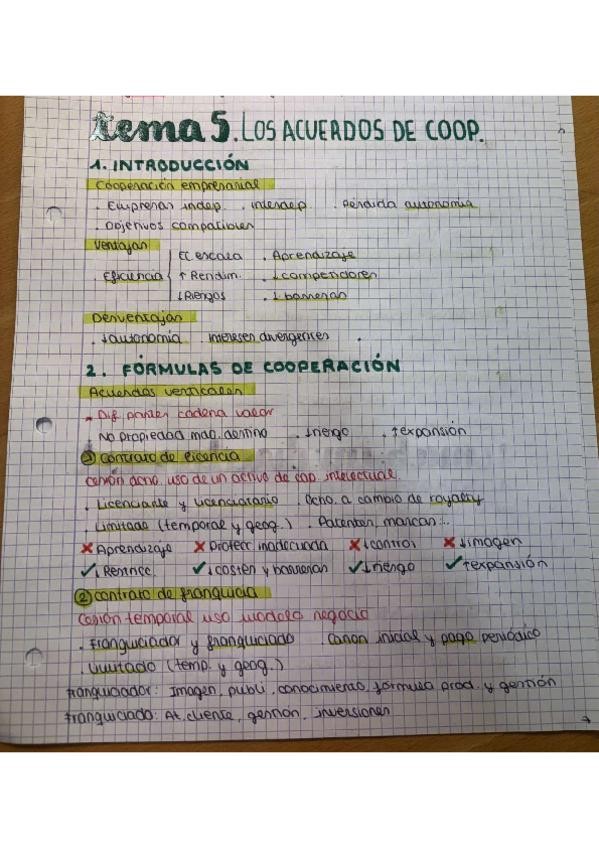 tema 5. LOS ACUERDOS DE COOP.
1. INTRODUCCIÓN
Cooperación empresarial
. Empresas indep. . interdep. . Pérdida autonomía
. Objetivos compatibles
Ventajas
. Eficiencia { Ec. escala . Aprendizaje
↑ Rendim. . ↓ competidores
↓ Riesgos . ↓ barreras
Desventajas
. ↓ autonomía intereses divergentes .
2. FÓRMULAS DE COOPERACIÓN
Acuerdos verticales
Dif. partes cadena valor
No propiedad mdo. destino . ↓ riesgo . ↑ expansión
① Contrato de licencia
Cesión dcho. uso de un activo de cap. intelectual.
. Licenciante y licenciatario . Dcho. a cambio de royalty
. Limitado (temporal y geog.) . Patentes, marcas...
✗ Aprendizaje ✗ Protecc inadecuada ✗ ↓ control ✗ ↓ imagen
✓ ↓ Restricc. ✓ ↓ costes y barreras ✓ ↓ riesgo ✓ ↑ expansión
② contrato de franquicia
Cesión temporal uso modelo negocio
. Franquiciador y franquiciado . Canon inicial y pago periódico
. Limitado (temp. y geog.)
Franquiciador: Imagen, publi, conocimiento, fórmula prod. y gestión
Franquiciado: At. cliente, gestión, inversiones